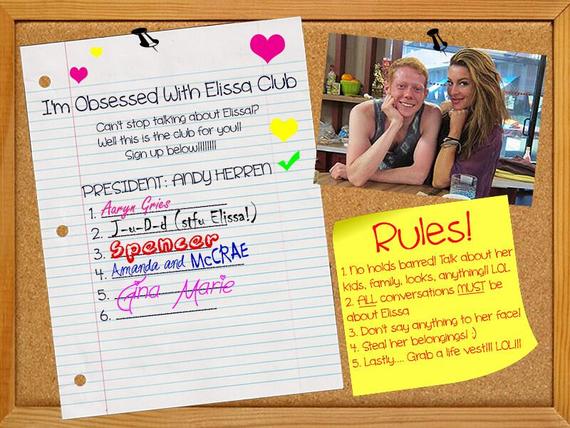 I'm Obsessed With Elissa Club
Can't stop talking about Elissa!?
Well this is the club for you!!
Sign up below!!!!!!!!
PRESIDENT: ANDY HERREN
1. Aaryn Gries
2. J-u-D-d (stfu Elissa!)
3. Spencer
4. Amanda and McCRAE
5. Gina Marie
6.
Rules!
1. No holds barred! Talk about her
kids, family, looks, anything!! LOL
2. ALL conversations MUST be
about Elissa
3. Don't say anything to her face!
4. Steal her belongings! ;)
5. Lastly.... Grab a life vest!!! LOL!!!